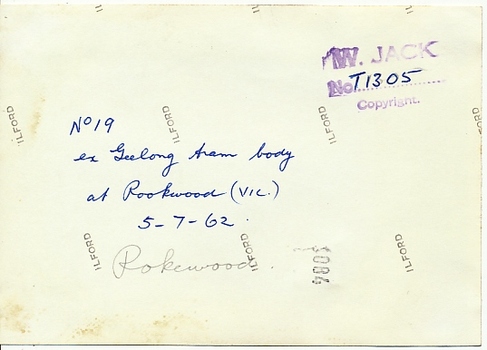 ILFORD
ILFORD
ILFORD
W. JACK
No T1305
Copyright.
ILFORD
ILFORD
ILFORD
ILFORD
No 19
ex Geelong tram body
at Rookwood (VIC.)
5-7-62.
ILFORD
ILFORD
ILFORD
Rokewood.